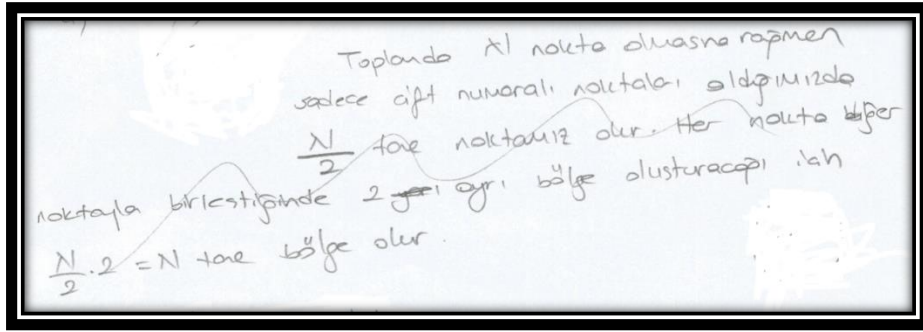 Toplamda N nokta olmasına rağmen
sadece çift numaralı noktaları aldığımızda
N/2 tane noktamız olur. Her nokta diğer
noktayla birleştiğinde 2 ayrı bölge oluşturacağı için
N/2 . 2 = N tane bölge olur.